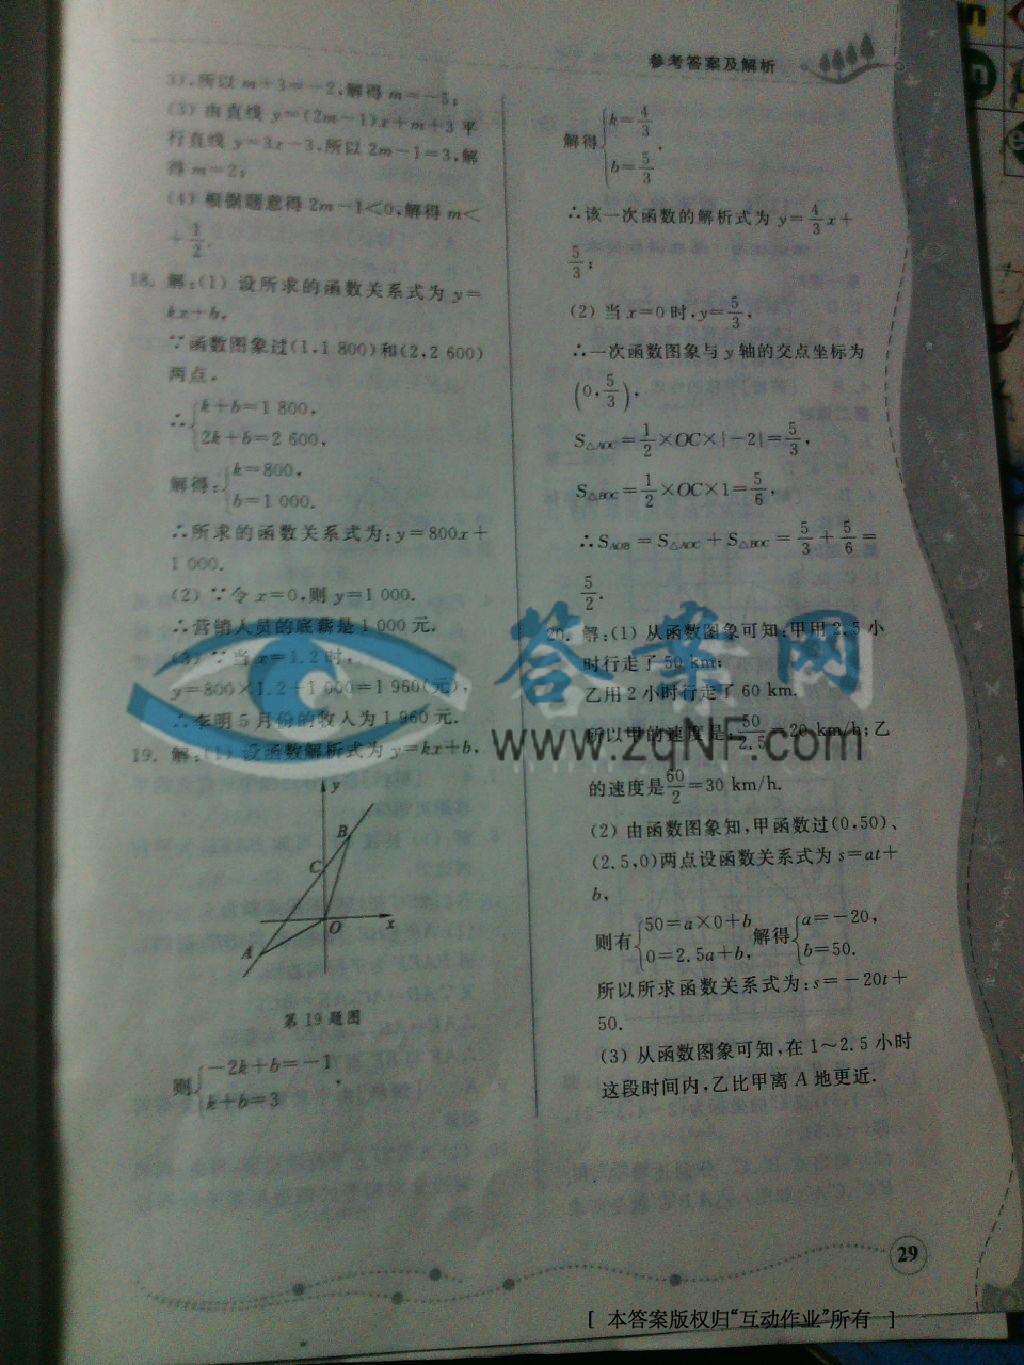 参考答案及解析
3),所以 m+3=-2,解得 m=-5;
(3) 由直线 y=(2m-1)x+m+3 平
行直线 y=3x-3,所以 2m-1=3,解
得 m=2;
(4) 根据题意得 2m-1<0,解得 m<
+1/2.
18. 解:(1) 设所求的函数关系式为 y=
kx+b,
∵函数图象过(1,1 800)和(2,2 600)
两点,
∴{k+b=1 800,
2k+b=2 600,
解得:{k=800,
b=1 000.
∴所求的函数关系式为:y=800x+
1 000.
(2) ∵令 x=0,则 y=1 000.
∴营销人员的底薪是 1 000 元.
(3) ∵当 x=1.2 时,
y=800×1.2+1 000=1 960(元),
∴李明 5 月份的收入为 1 960 元.
19. 解:(1) 设函数解析式为 y=kx+b,
y
B
C
O
x
A
第 19 题图
则{-2k+b=-1
k+b=3,
解得{k=4/3
b=5/3,
∴该一次函数的解析式为 y=4/3x+
5/3;
(2) 当 x=0 时,y=5/3,
∴一次函数图象与 y 轴的交点坐标为
(0,5/3),
S△AOC=1/2×OC×|-2|=5/3,
S△BOC=1/2×OC×1=5/6,
∴SAOB=S△AOC+S△BOC=5/3+5/6=
5/2.
20. 解:(1) 从函数图象可知:甲用 2.5 小
时行走了 50 km;
乙用 2 小时行走了 60 km.
所以甲的速度是:50/2.5=20 km/h;乙
的速度是60/2=30 km/h.
(2) 由函数图象知,甲函数过(0,50)、
(2.5,0)两点设函数关系式为 s=at+
b,
则有{50=a×0+b
0=2.5a+b,解得{a=-20,
b=50.
所以所求函数关系式为:s=-20t+
50.
(3) 从函数图象可知,在 1~2.5 小时
这段时间内,乙比甲离 A 地更近.
答案网
www.zqNF.com
29
[ 本答案版权归“互动作业”所有 ]